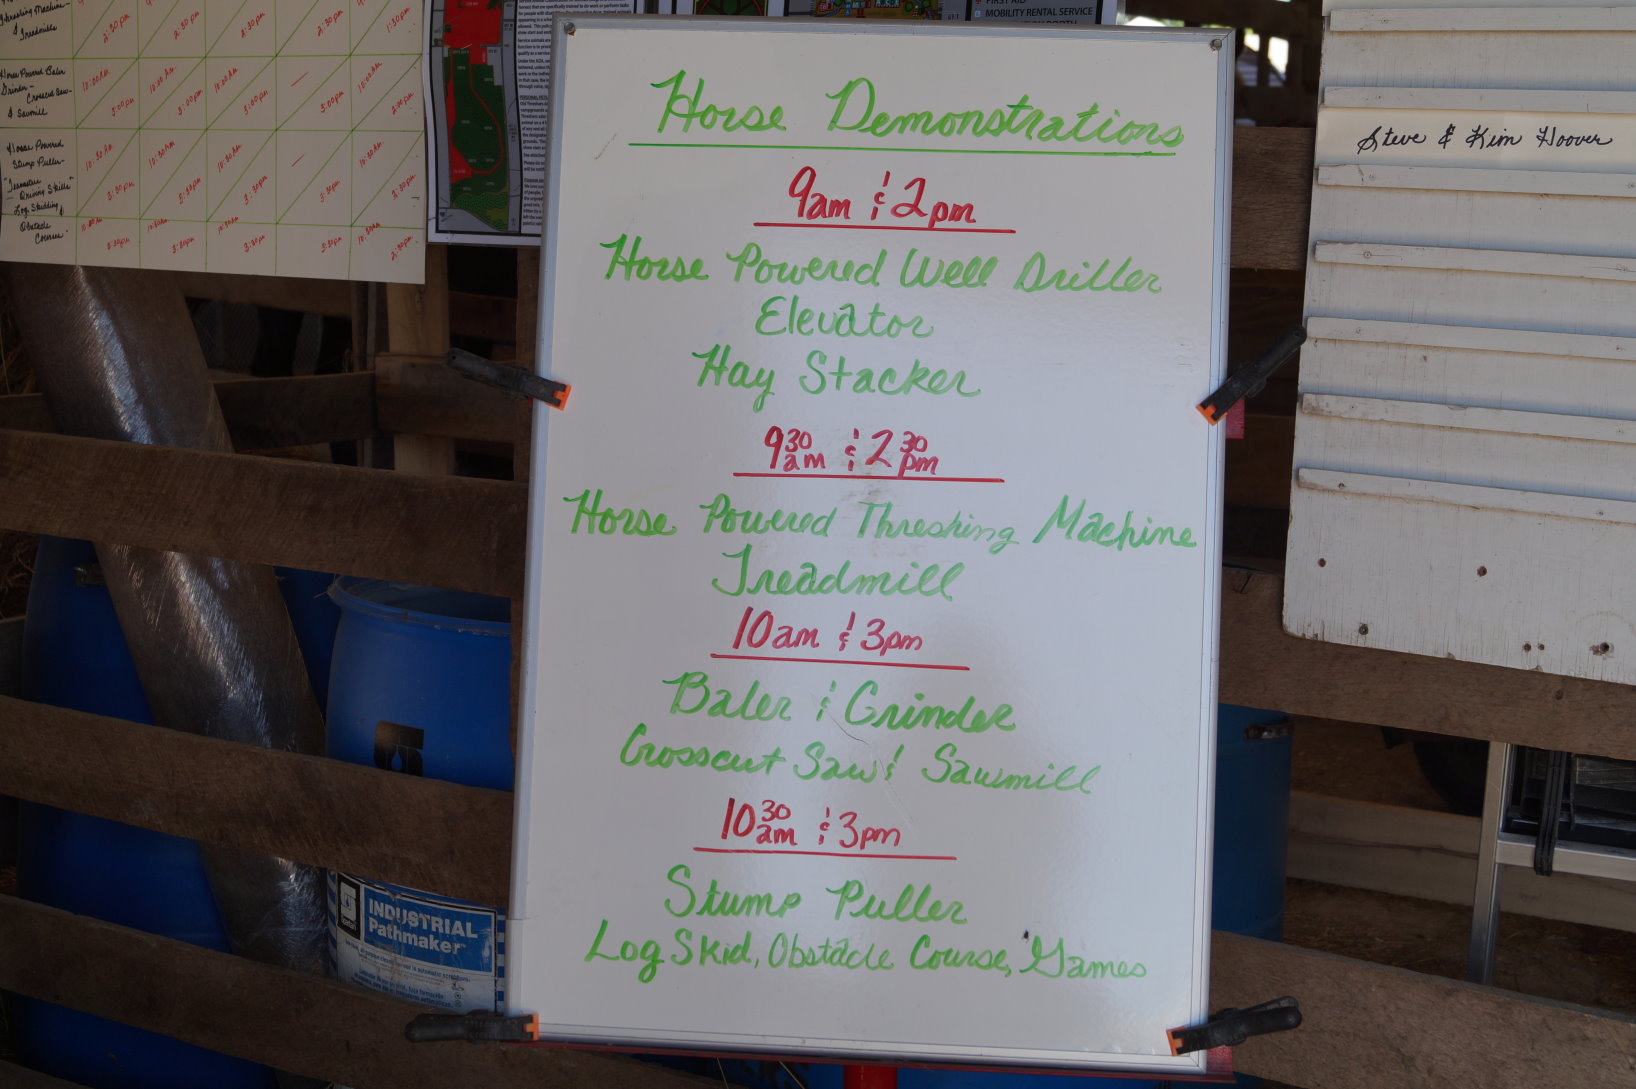 Horse Demonstrations
9am & 2pm
Horse Powered Well Driller
Elevator
Hay Stacker
9 30 am & 2 30 pm
Horse Powered Threshing Machine
Treadmill
10am & 3pm
Baler & Grinder
Crosscut Saw & Sawmill
10 30 am & 3pm
Stump Puller
Log Skid, Obstacle Course, Games
Steve & Kim Hoover
FIRST AID
MOBILITY RENTAL SERVICE
Threshing Machine -
Treadmills
2:30pm 2:30pm 2:30pm 2:30pm 1:30pm
Horse Powered Baler
Grinder -
Crosscut Saw -
& Sawmill
10:00am 10:00am 10:00am — 10:00am
3:00pm 3:00pm 3:00pm 3:00pm 2:00pm
Horse Powered
Stump Puller -
"Teamster
Driving Skills"
Log Skidding &
Obstacle
Course
10:30am 10:30am 10:30am — 10:30am
3:30pm 3:30pm 3:30pm 3:30pm 2:30pm
INDUSTRIAL
Pathmaker